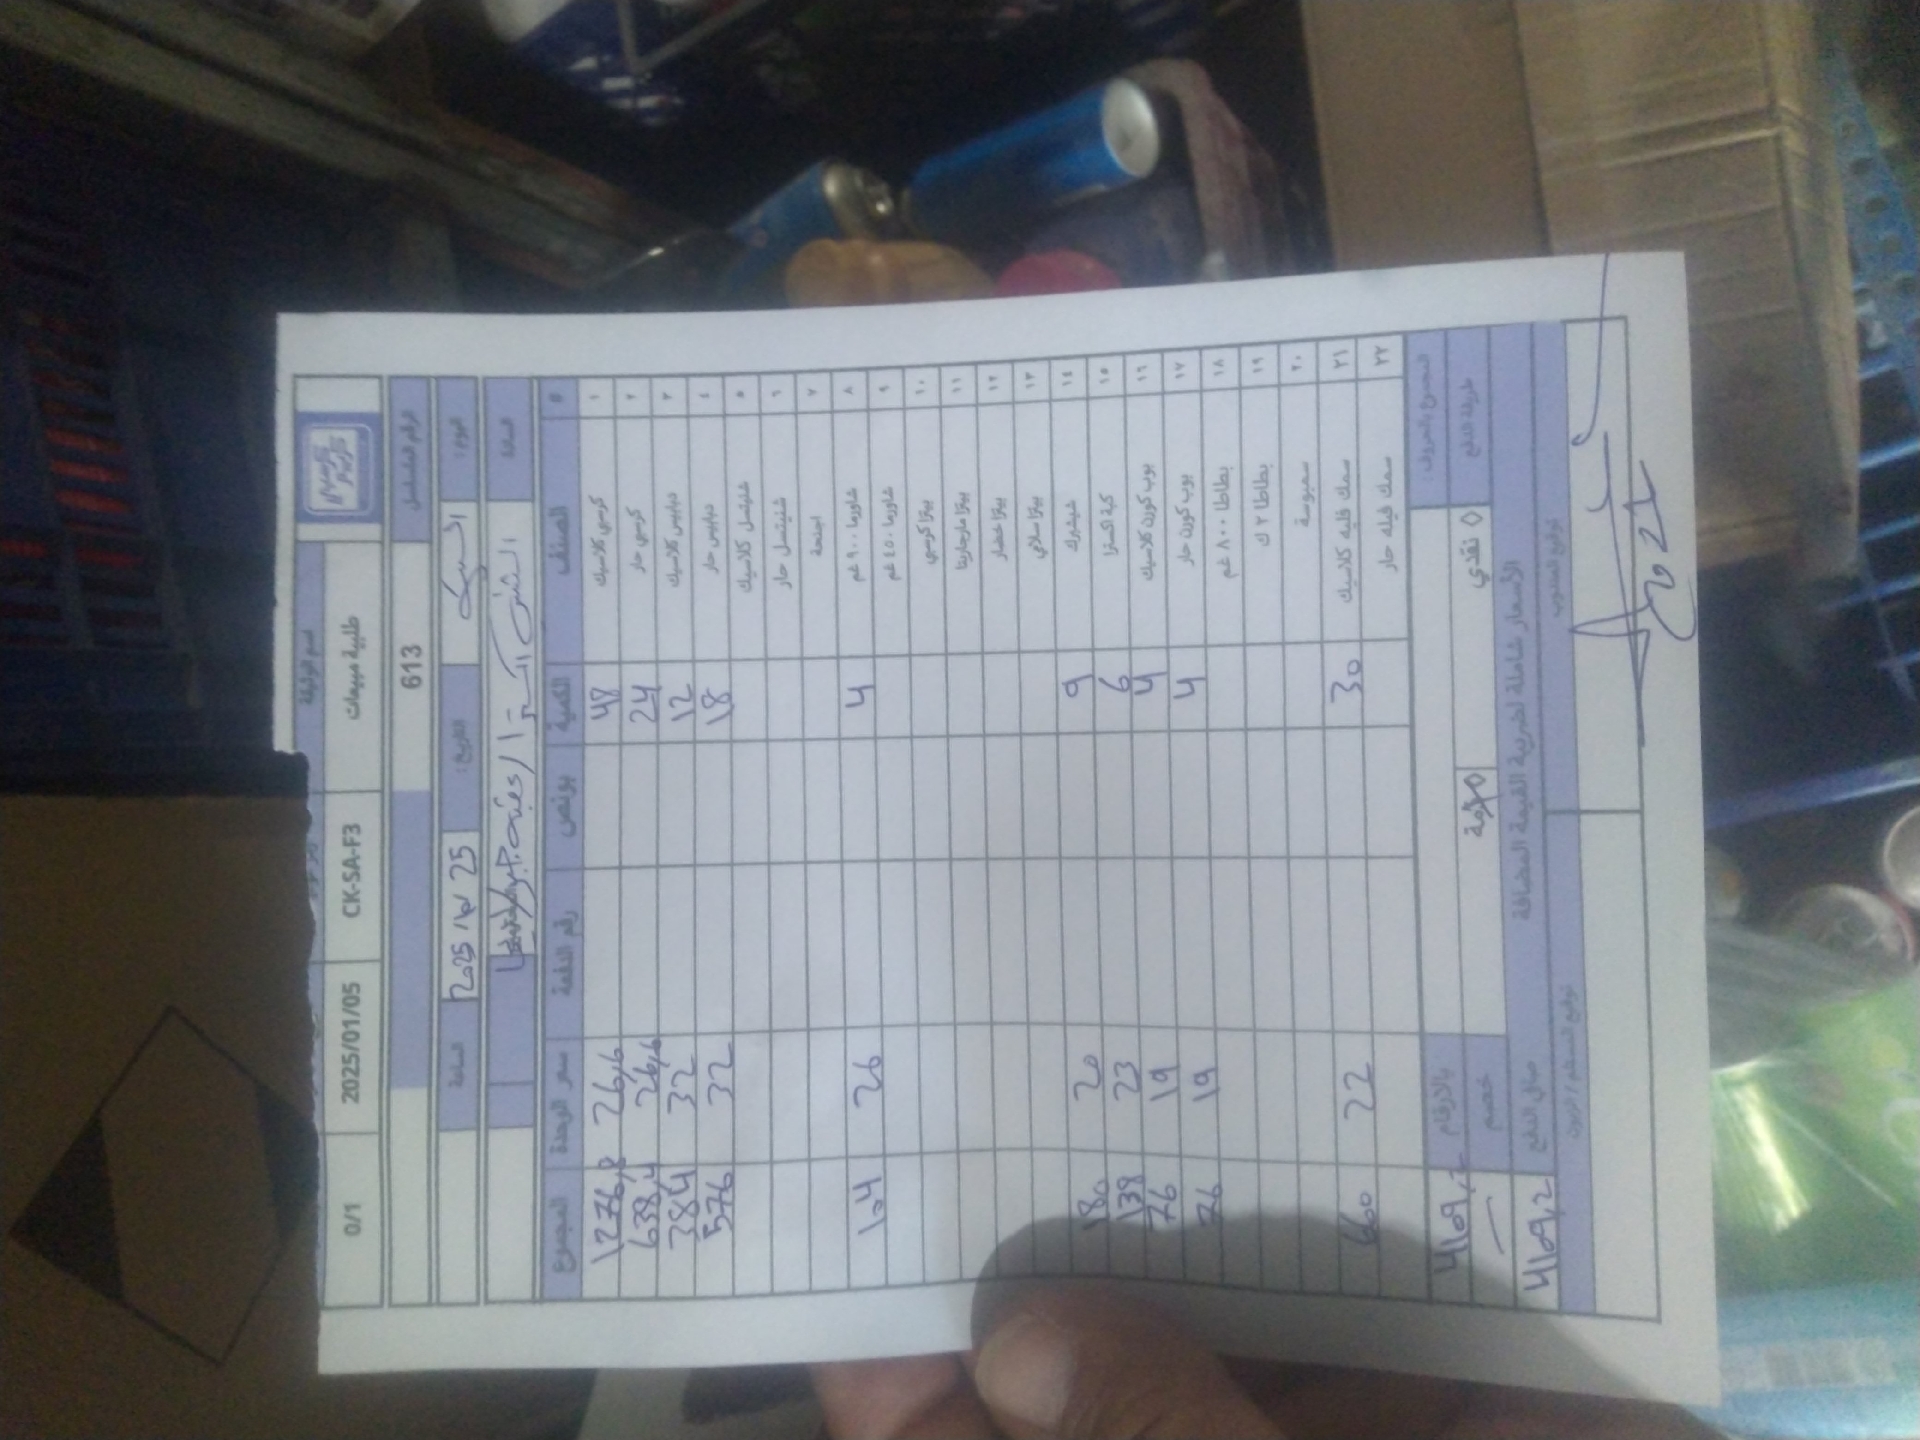 اسم الوثيقة
طلبية مبيعات CK-SA-F3 2025/01/05 0/1
الرقم التسلسل 613
اليوم: السبت التاريخ: الساعة
السادة
# الصنف الكمية بونص رقم الطبعة سعر الوحدة المجموع
١ كرسبي كلاسيك 48 26,6 1276,8
٢ كرسبي حار 24 26,6 638,4
٣ دبابيس كلاسيك 12 32 384
٤ دبابيس حار 18 32 576
٥ شنيتسل كلاسيك
٦ شنيتسل حار
٧ اجنحة
٨ شاورما ٩٠٠ غم 4 26 104
٩ شاورما ٤٥٠ غم
١٠ بيتزا كرسبي
١١ بيتزا مارجاريتا
١٢ بيتزا خضار
١٣ بيتزا سلامي
١٤ شيشبرك 9 20 180
١٥ كبة اكسترا 6 23 138
١٦ بوب كورن كلاسيك 4 19 76
١٧ بوب كورن حار 4 19 76
١٨ بطاطا ٨٠٠ غم
١٩ بطاطا ٢ ك
٢٠ سمبوسة
٢١ سمك فليه كلاسيك 30 22 660
٢٢ سمك فيله حار
المجموع بالحروف: بالأرقام
طريقة الدفع ◊ نقدي ◊ ذمة خصم
الأسعار شاملة لضريبة القيمة المضافة صافي الدفع 4109,2
توقيع المندوب توقيع المستلم / الزبون